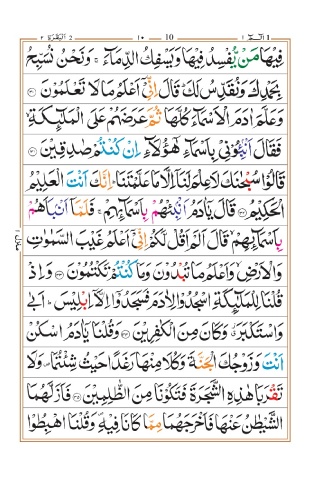 الٓمّٓ ١ 10 ١٠ الْبَقَرَة ٢ 2
فِيْهَا مَنْ يُّفْسِدُ فِيْهَا وَيَسْفِكُ الدِّمَآءَ ۚ وَنَحْنُ نُسَبِّحُ
بِحَمْدِكَ وَنُقَدِّسُ لَكَ ؕ قَالَ اِنِّيْٓ اَعْلَمُ مَا لَا تَعْلَمُوْنَ ﴿۳۰﴾
وَعَلَّمَ اٰدَمَ الْاَسْمَآءَ كُلَّهَا ثُمَّ عَرَضَهُمْ عَلَى الْمَلٰٓئِكَةِ ۙ
فَقَالَ اَنْۢبِـُٔوْنِيْ بِاَسْمَآءِ هٰٓؤُلَآءِ اِنْ كُنْتُمْ صٰدِقِيْنَ ﴿۳۱﴾
قَالُوْا سُبْحٰنَكَ لَا عِلْمَ لَنَآ اِلَّا مَا عَلَّمْتَنَا ؕ اِنَّكَ اَنْتَ الْعَلِيْمُ
الْحَكِيْمُ ﴿۳۲﴾ قَالَ يٰٓاٰدَمُ اَنْۢبِئْهُمْ بِاَسْمَآئِهِمْ ۚ فَلَمَّآ اَنْۢبَاَهُمْ
بِاَسْمَآئِهِمْ ۙ قَالَ اَلَمْ اَقُلْ لَّكُمْ اِنِّيْٓ اَعْلَمُ غَيْبَ السَّمٰوٰتِ
وَالْاَرْضِ ۙ وَاَعْلَمُ مَا تُبْدُوْنَ وَمَا كُنْتُمْ تَكْتُمُوْنَ ﴿۳۳﴾ وَاِذْ
قُلْنَا لِلْمَلٰٓئِكَةِ اسْجُدُوْا لِاٰدَمَ فَسَجَدُوْٓا اِلَّآ اِبْلِيْسَ ؕ اَبٰى
وَاسْتَكْبَرَ ٭ۗ وَكَانَ مِنَ الْكٰفِرِيْنَ ﴿۳۴﴾ وَقُلْنَا يٰٓاٰدَمُ اسْكُنْ
اَنْتَ وَزَوْجُكَ الْجَنَّةَ وَكُلَا مِنْهَا رَغَدًا حَيْثُ شِئْتُمَا ۪ وَلَا
تَقْرَبَا هٰذِهِ الشَّجَرَةَ فَتَكُوْنَا مِنَ الظّٰلِمِيْنَ ﴿۳۵﴾ فَاَزَلَّهُمَا
الشَّيْطٰنُ عَنْهَا فَاَخْرَجَهُمَا مِمَّا كَانَا فِيْهِ ۪ وَقُلْنَا اهْبِطُوْا